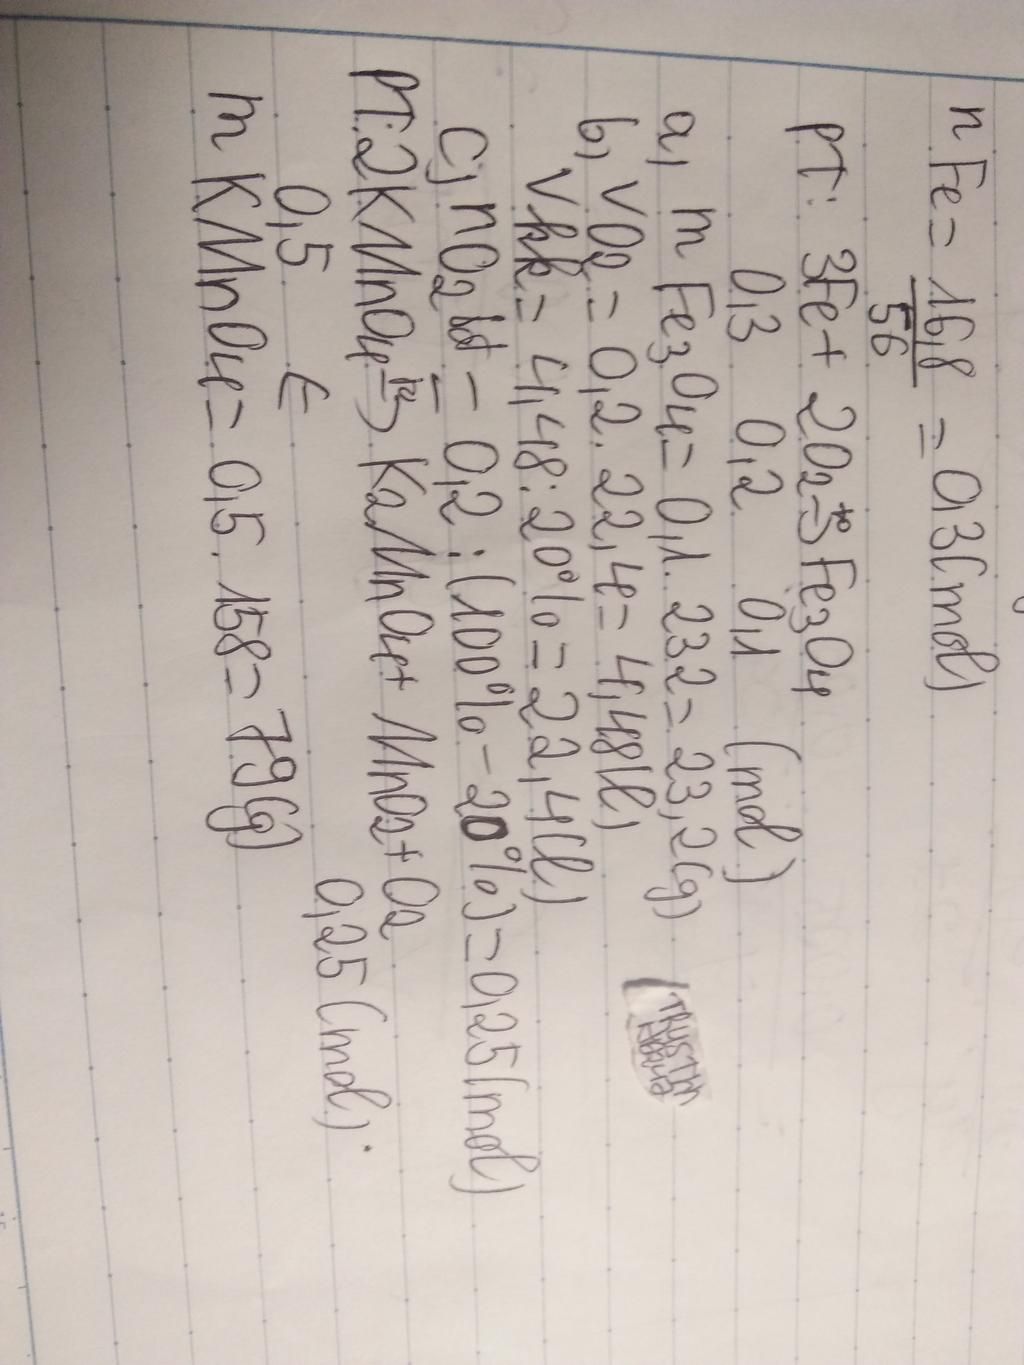 n Fe = 16,8 / 56 = 0,3(mol)
PT: 3Fe + 2O2 -to-> Fe3O4
0,3 0,2 0,1 (mol)
a, m Fe3O4 = 0,1. 232 = 23,2(g)
b, VO2 = 0,2. 22,4 = 4,48(l)
Vkk = 4,48: 20% = 22,4(l)
c, nO2 lt = 0,2 : (100% - 20%) = 0,25(mol)
PT: 2KMnO4 -to-> K2MnO4 + MnO2 + O2
0,5 ← 0,25(mol).
m KMnO4 = 0,5. 158 = 79(g)